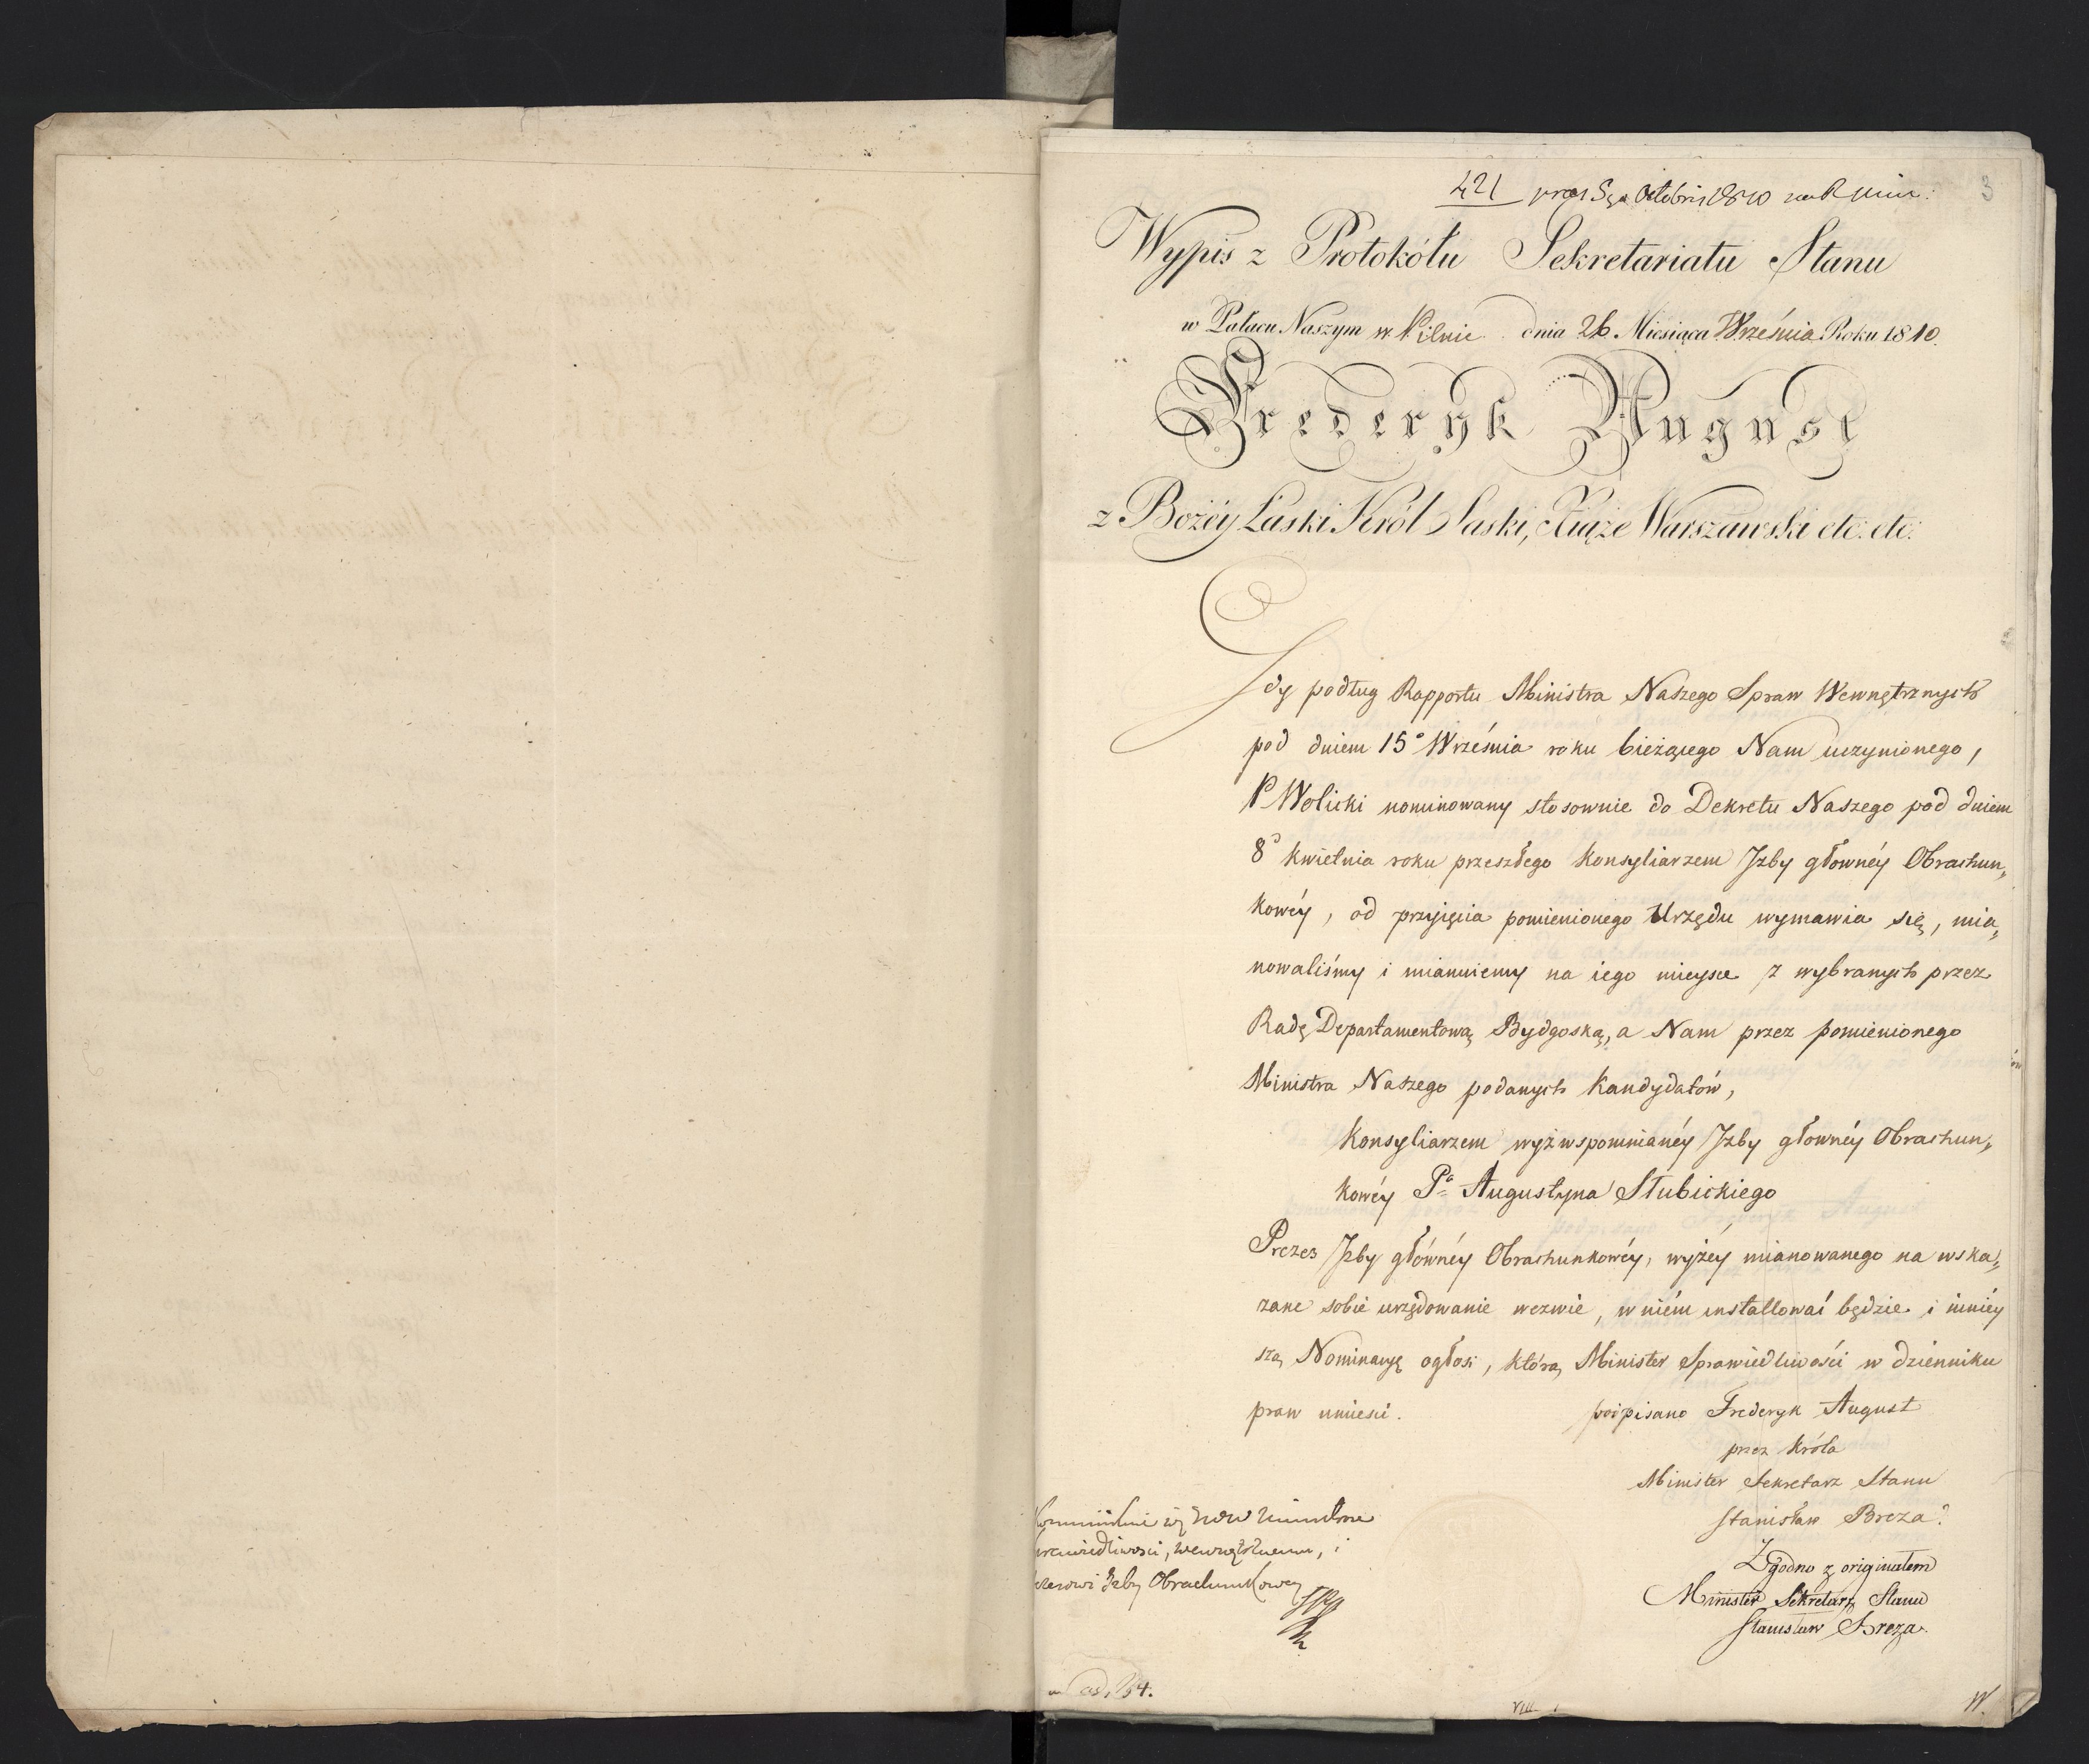 421 Octobris 1810
3
Wypis z Protokółu Sekretariatu Stanu
w Pałacu Naszym w Pilnic dnia 26 Miesiąca Września Roku 1810.
Frederyk August
z Bożéy Łaski Król Saski, Xiąże Warszawski etc: etc:
Gdy podług Rapportu Ministra Naszego Spraw Wewnętrznych
pod dniem 15° Września roku bieżącego Nam uczynionego,
P Wolicki nominowany stosownie do Dekretu Naszego pod dniem
8° kwietnia roku przeszłego Konsyliarzem Jzby głownéy Obrachun„
kowéy, od przyięcia pomienionego Urzędu wymawia się, mia„
nowaliśmy i mianuiemy na iego mieysce z wybranych przez
Radę Departamentową Bydgoską, a Nam przez pomienionego
Ministra Naszego podanych Kandydatów,
Konsyliarzem wyż wspomnianéy Jzby głownéy Obrachun„
kowéy Pa Augustyna Słubickiego
Prezes Jzby głównéy Obrachunkowéy, wyżéy mianowanego na wska„
zane sobie urzędowanie wezwie, w niém installować będzie i niniéy
szą Nominacyę ogłosi, którą Minister Sprawiedliwości w dzienniku
praw umieści. podpisano Frederyk August
przez Króla
Minister Sekretarz Stanu
Stanisław Breza.
Zgodno z originałem
Minister Sekretarz Stanu
Stanisław Breza.
sprawiedliwości, wewnętrznemu, i
Jzby Obrachunkowey
ad 34.
VIII 1
W.